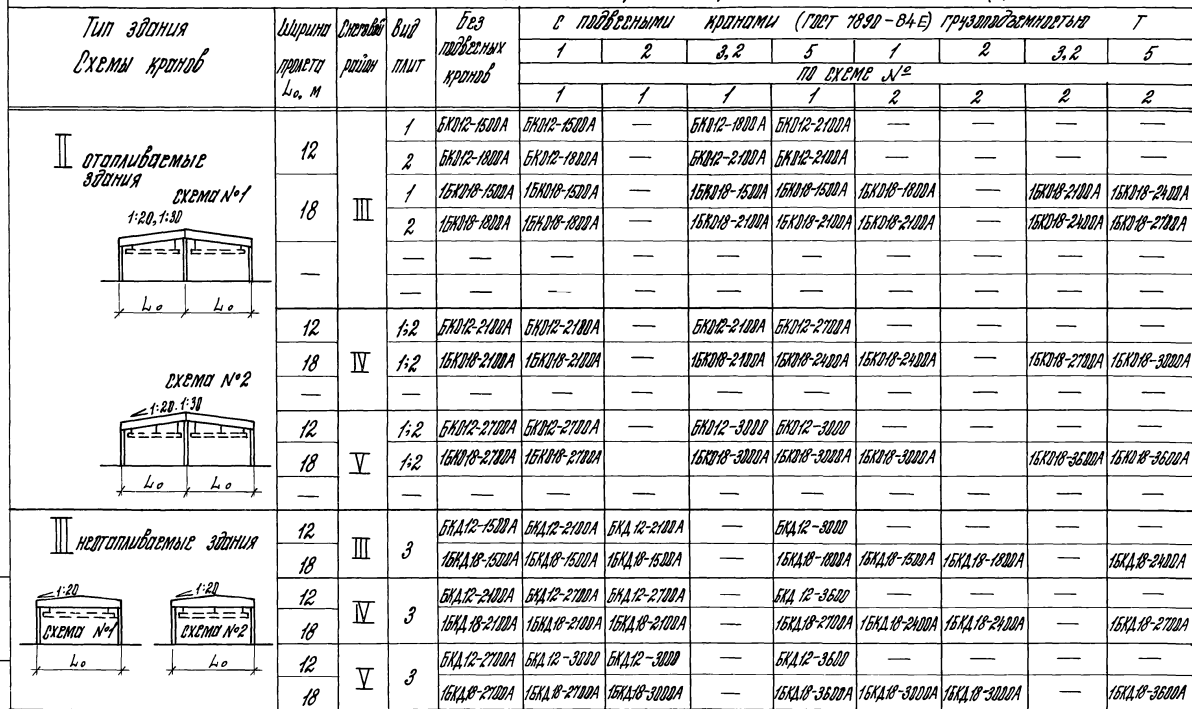 Тип здания Схемы кранов | Ширина пролета L₀, м | Снеговой район | Вид плит | Без подвесных кранов | С подвесными кранами (ГОСТ 7890-84Е) грузоподъемностью Т
1 | 2 | 3,2 | 5 | 1 | 2 | 3,2 | 5
по схеме №
1 | 1 | 1 | 1 | 2 | 2 | 2 | 2
II отапливаемые здания
схема №1
1:20, 1:30
L₀ L₀
схема №2
1:20. 1:30
L₀ L₀
12 | III | 1 | БКД12-1500А | БКД12-1500А | — | БКД12-1800А | БКД12-2100А | — | — | — | —
2 | БКД12-1800А | БКД12-1800А | — | БКД12-2100А | БКД12-2100А | — | — | — | —
18 | 1 | 1БКД18-1500А | 1БКД18-1500А | | 1БКД18-1500А | 1БКД18-1500А | 1БКД18-1800А | | 1БКД18-2100А | 1БКД18-2400А
2 | 1БКД18-1800А | 1БКД18-1800А | — | 1БКД18-2100А | 1БКД18-2100А | 1БКД18-2100А | — | 1БКД18-2400А | 1БКД18-2700А
— | — | — | — | — | — | — | — | — | —
— | — | — | — | — | — | — | — | — | —
12 | IV | 1;2 | БКД12-2100А | БКД12-2100А | — | БКД12-2100А | БКД12-2700А | — | — | — | —
18 | 1;2 | 1БКД18-2100А | 1БКД18-2100А | — | 1БКД18-2100А | 1БКД18-2400А | 1БКД18-2400А | — | 1БКД18-2700А | 1БКД18-3000А
— | — | — | — | — | — | — | — | — | —
12 | V | 1;2 | БКД12-2700А | БКД12-2700А | — | БКД12-3000 | БКД12-3000 | — | — | — | —
18 | 1;2 | 1БКД18-2700А | 1БКД18-2700А | | 1БКД18-3000А | 1БКД18-3000А | 1БКД18-3000А | | 1БКД18-3600А | 1БКД18-3600А
— | — | — | — | — | — | — | — | — | —
III неотапливаемые здания
1:20
схема №1
L₀
1:20
схема №2
L₀
12 | III | 3 | БКД12-1500А | БКД12-2100А | БКД12-2100А | — | БКД12-3000 | — | — | — | —
18 | 1БКД18-1500А | 1БКД18-1500А | 1БКД18-1500А | — | 1БКД18-1800А | 1БКД18-1500А | 1БКД18-1800А | | 1БКД18-2400А
12 | IV | 3 | БКД12-2400А | БКД12-2700А | БКД12-2700А | — | БКД12-3600 | — | — | — | —
18 | 1БКД18-2100А | 1БКД18-2100А | 1БКД18-2100А | — | 1БКД18-2700А | 1БКД18-2400А | 1БКД18-2400А | — | 1БКД18-2700А
12 | V | 3 | БКД12-2700А | БКД12-3000 | БКД12-3000 | — | БКД12-3600 | — | — | — | —
18 | 1БКД18-2700А | 1БКД18-2700А | 1БКД18-3000А | | 1БКД18-3600А | 1БКД18-3000А | 1БКД18-3000А | — | 1БКД18-3600А